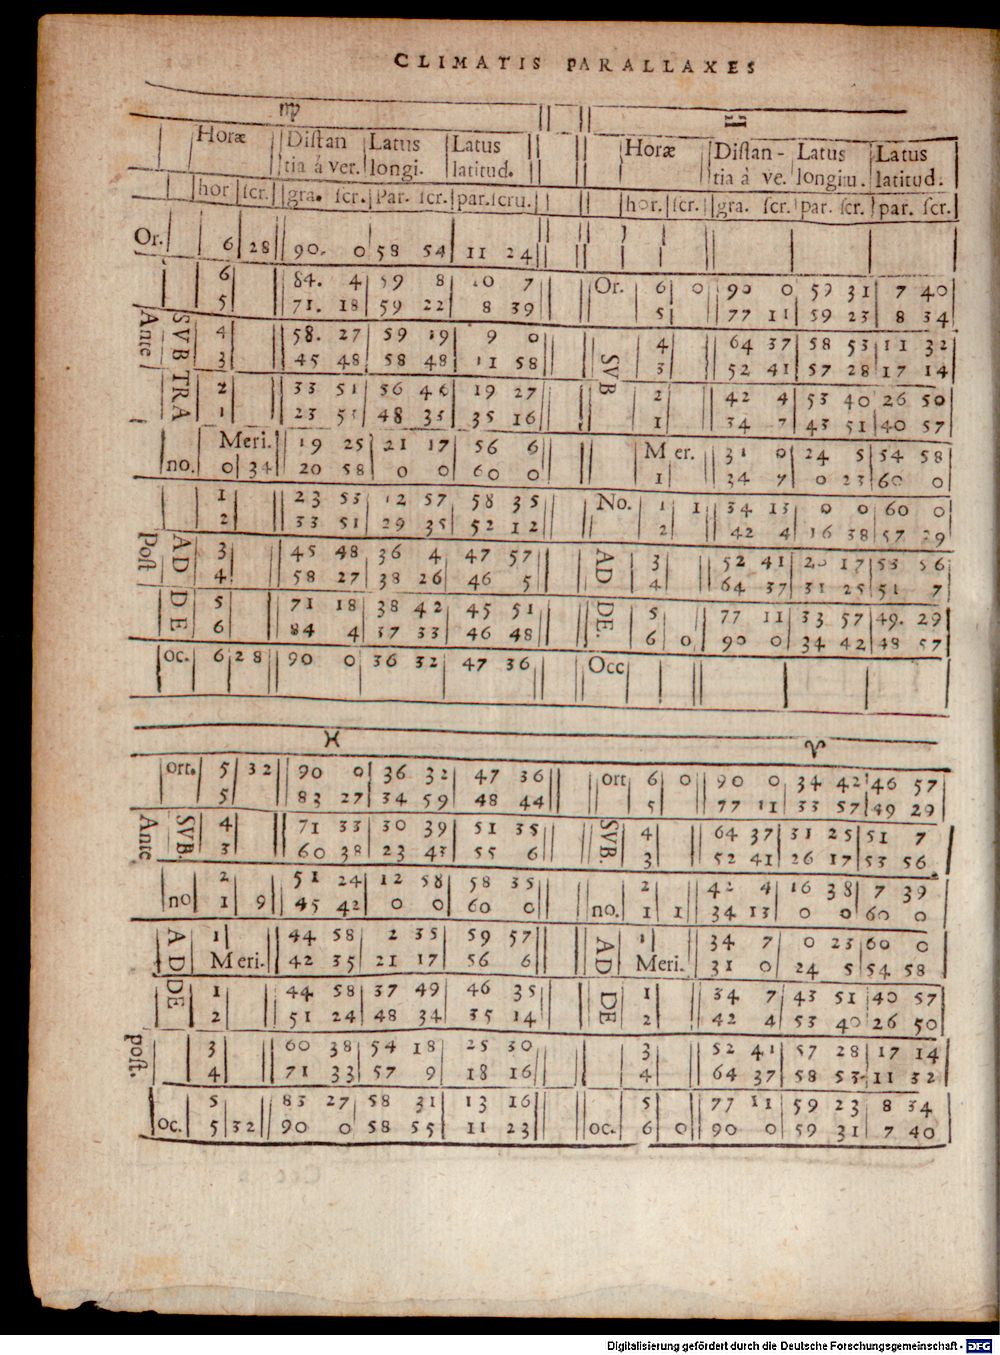 CLIMATIS PARALLAXES
♍ ♎
Horæ Distan Latus Latus Horæ Distan- Latus Latus
tia á ver. longi. latitud. tia à ve. longitu. latitud.
hor scr. gra. scr. Par. scr. par. scru. hor. scr. gra. scr. par. scr. par. scr.
Or. 6 28 90. 0 58 54 11 24
6 84. 4 59 8 10 7 Or. 6 0 90 0 59 31 7 40
5 71. 18 59 22 8 39 5 77 11 59 23 8 34
Ante SVB TRA 4 58. 27 59 19 9 0 SVB 4 64 37 58 53 11 32
3 45 48 58 48 11 58 3 52 41 57 28 17 14
2 33 51 56 46 19 27 2 42 4 53 40 26 50
1 23 53 48 35 35 16 1 34 7 43 51 40 57
Meri. 19 25 21 17 56 6 Mer. 31 0 24 5 54 58
no. 0 34 20 58 0 0 60 0 1 34 7 0 23 60 0
1 23 53 12 57 58 35 No. 1 1 34 13 0 0 60 0
2 33 51 29 35 52 12 2 42 4 16 38 57 29
post AD DE 3 45 48 36 4 47 57 AD DE. 3 52 41 26 17 53 56
4 58 27 38 26 46 5 4 64 37 31 25 51 7
5 71 18 38 42 45 51 5 77 11 33 57 49. 29
6 84 4 37 33 46 48 6 0 90 0 34 42 48 57
oc. 6 28 90 0 36 32 47 36 Occ
♓ ♈
ort. 5 32 90 0 36 32 47 36 ort 6 0 90 0 34 42 46 57
5 83 27 34 59 48 44 5 77 11 33 57 49 29
Ante SVB. 4 71 33 30 39 51 35 SVB. 4 64 37 31 25 51 7
3 60 38 23 43 55 6 3 52 41 26 17 53 56
2 51 24 12 58 58 35 2 42 4 16 38 7 39
no 1 9 45 42 0 0 60 0 no. 1 1 34 13 0 0 60 0
AD DE 1 44 58 2 35 59 57 AD DE 1 34 7 0 23 60 0
Meri. 42 35 21 17 56 6 Meri. 31 0 24 5 54 58
1 44 58 37 49 46 35 1 34 7 43 51 40 57
2 51 24 48 34 35 14 2 42 4 53 40 26 50
post. 3 60 38 54 18 25 30 3 52 41 57 28 17 14
4 71 33 57 9 18 16 4 64 37 58 53 11 32
5 83 27 58 31 13 16 5 77 11 59 23 8 34
oc. 5 32 90 0 58 55 11 23 oc. 6 0 90 0 59 31 7 40
Digitalisierung gefördert durch die Deutsche Forschungsgemeinschaft - DFG